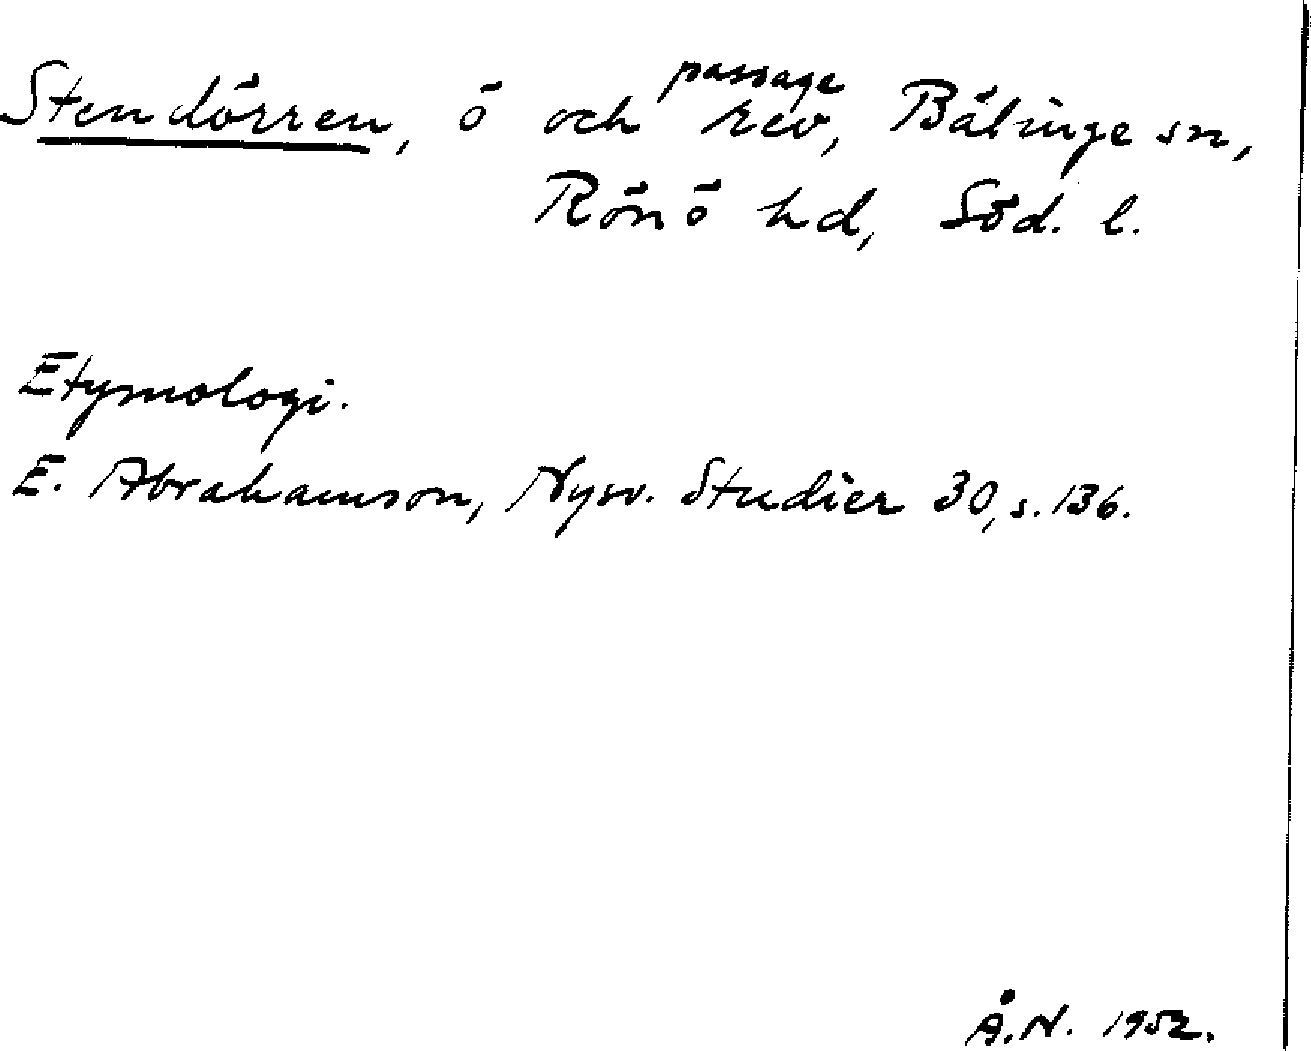 Stendörren, ö och rev, Bälinge sn,
passage
Rönö hd, Söd. l.
Etymologi.
E. Abrahamson, Nysv. Studier 30, s. 136.
Å.N. 1952.